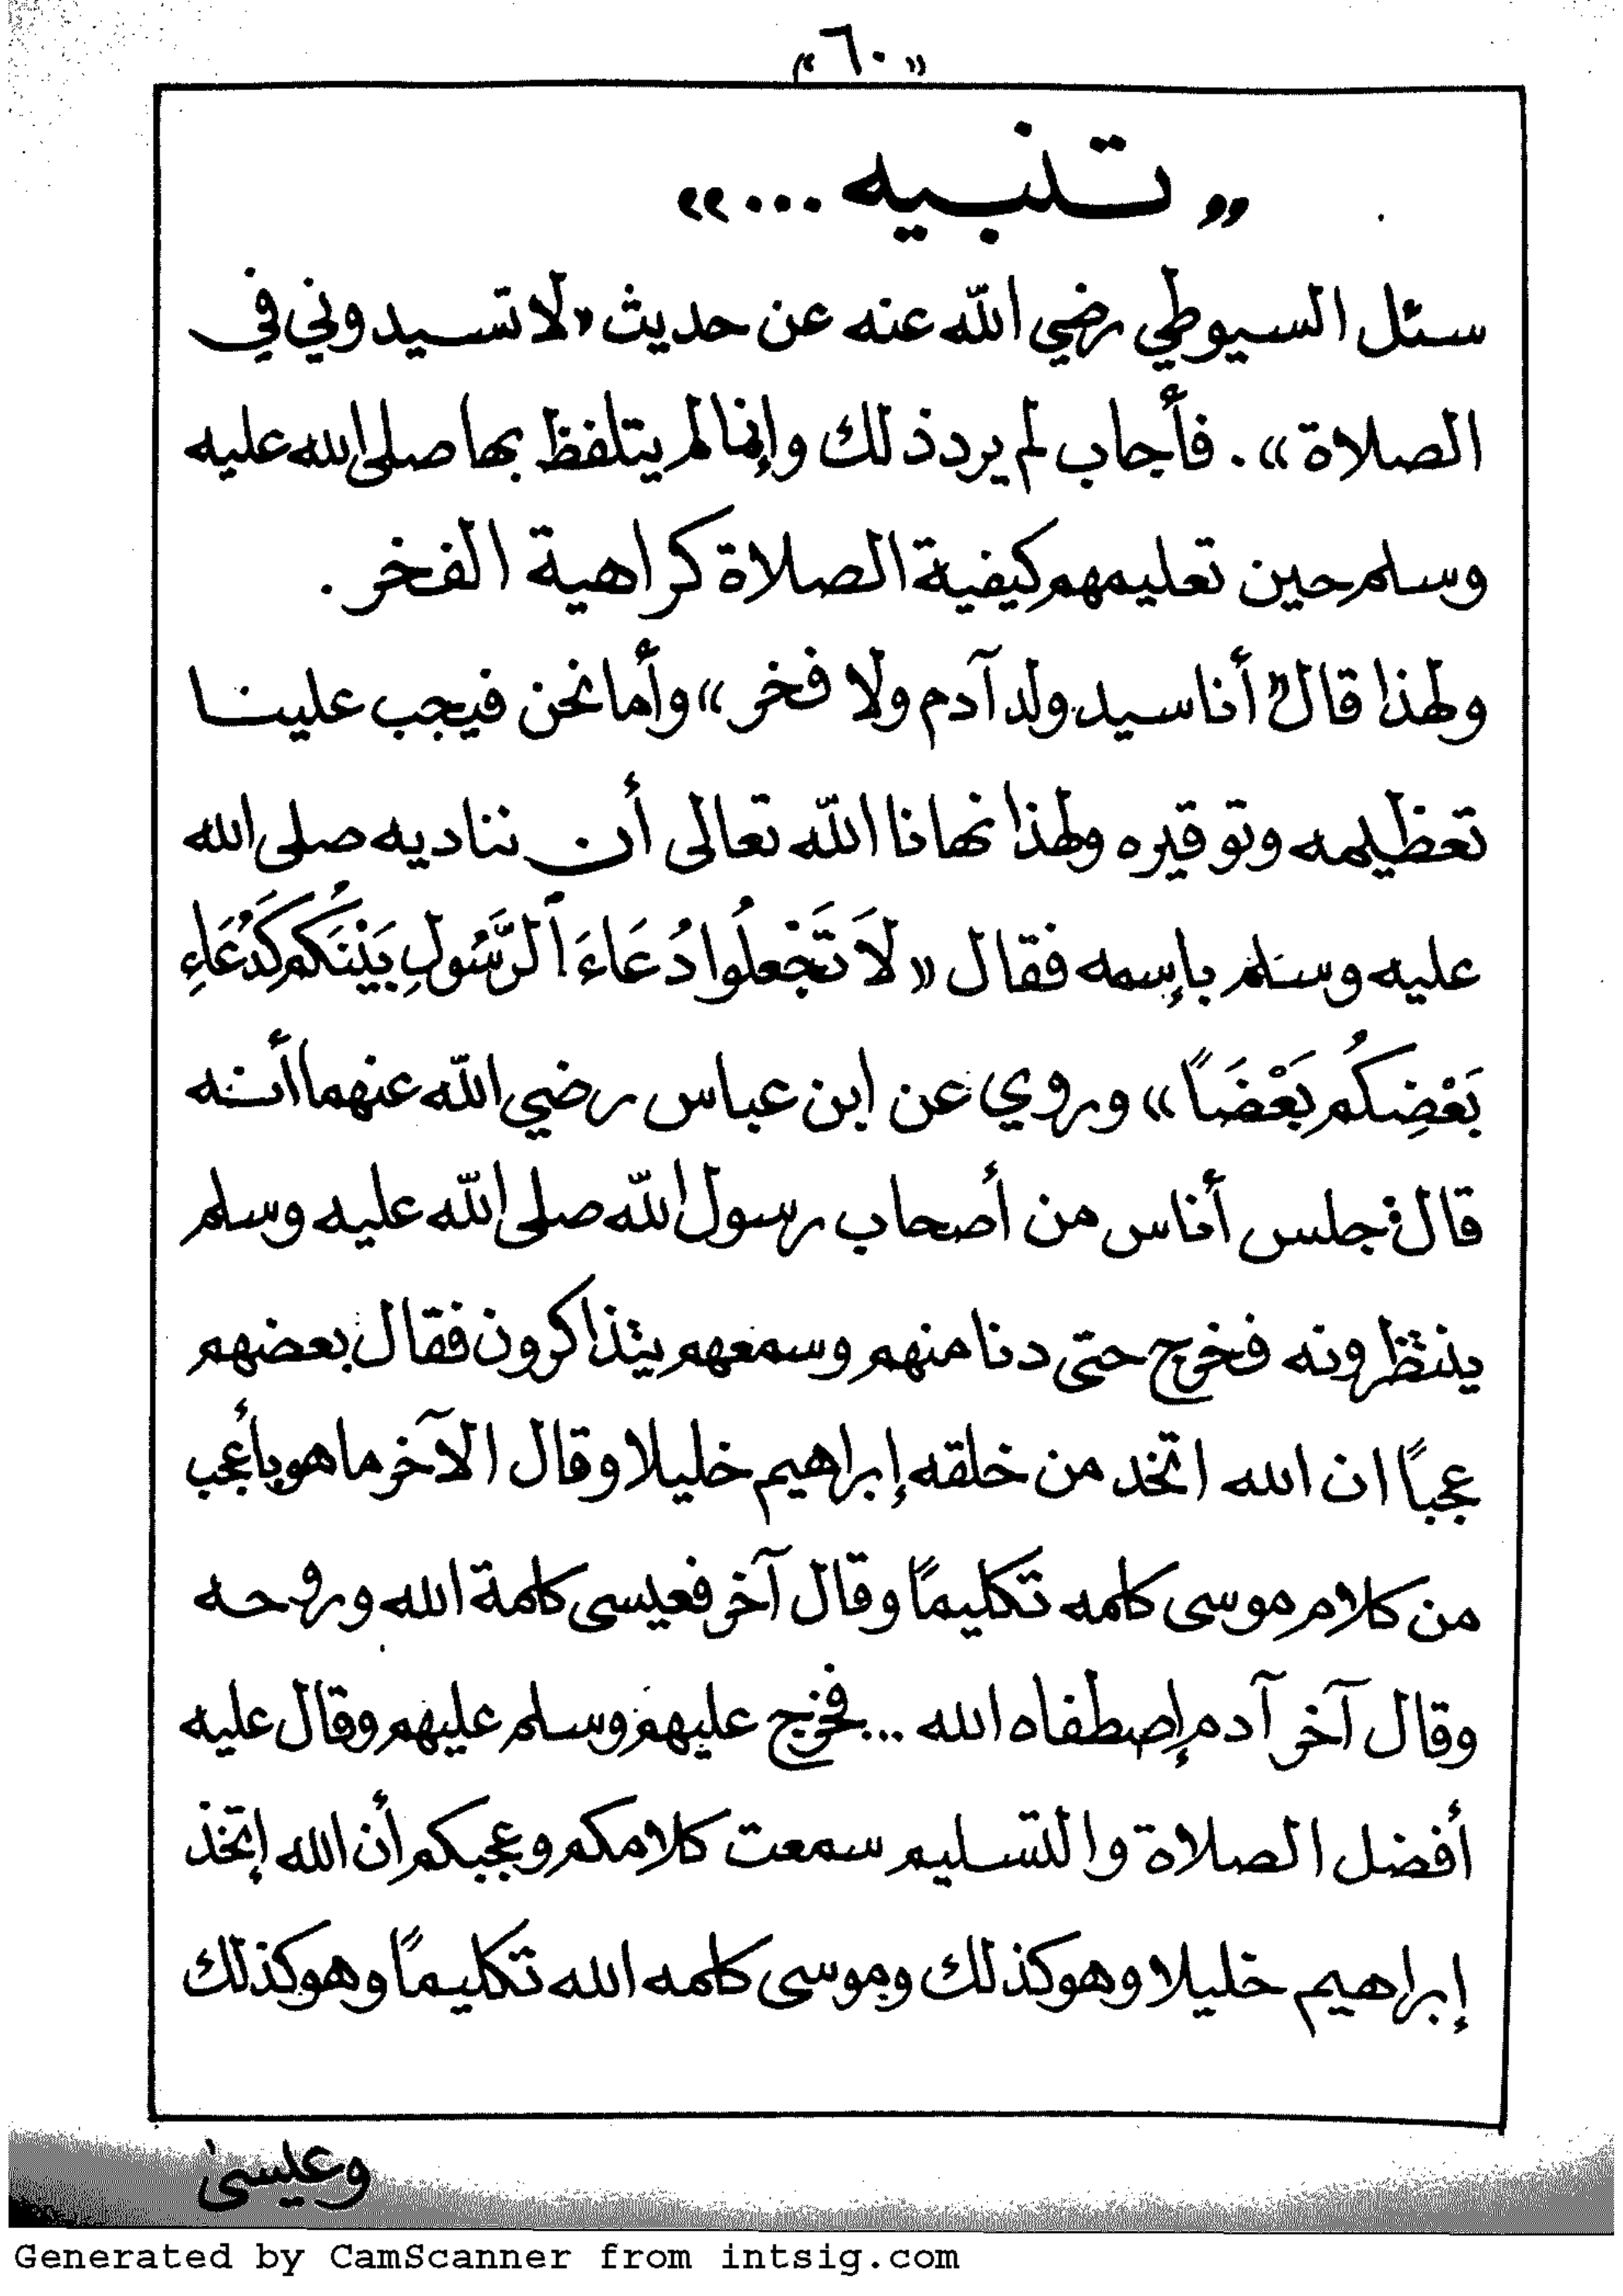 «٦٠»
«تنبيه ...»
سئل السيوطي رضي الله عنه عن حديث «لا تسيدوني في
الصلاة» . فأجاب لم يرد ذلك وإنما لم يتلفظ بها صلى الله عليه
وسلم حين تعليمهم كيفية الصلاة كراهية الفخر .
ولهذا قال «أنا سيد ولد آدم ولا فخر» وأما نحن فيجب علينا
تعظيمه وتوقيره ولهذا نهانا الله تعالى أن نناديه صلى الله
عليه وسلم بإسمه فقال «لَا تَجْعَلُوا دُعَاءَ ٱلرَّسُولِ بَيْنَكُم كَدُعَاءِ
بَعْضِكُم بَعْضَاً» وروي عن ابن عباس رضي الله عنهما أنه
قال: جلس أناس من أصحاب رسول الله صلى الله عليه وسلم
ينتظرونه فخرج حتى دنا منهم وسمعهم يتذاكرون فقال بعضهم
عجباً ان الله اتخد من خلقه إبراهيم خليلا وقال الآخر ما هو بأعجب
من كلام موسى كلمه تكليماً وقال آخر فعيسى كلمة الله وروحه
وقال آخر آدم إصطفاه الله ... فخرج عليهم وسلم عليهم وقال عليه
أفضل الصلاة والتسليم سمعت كلامكم وعجبكم أن الله إتخذ
إبراهيم خليلا وهو كذلك وموسى كلمه الله تكليماً وهو كذلك
وعيسى
Generated by CamScanner from intsig.com